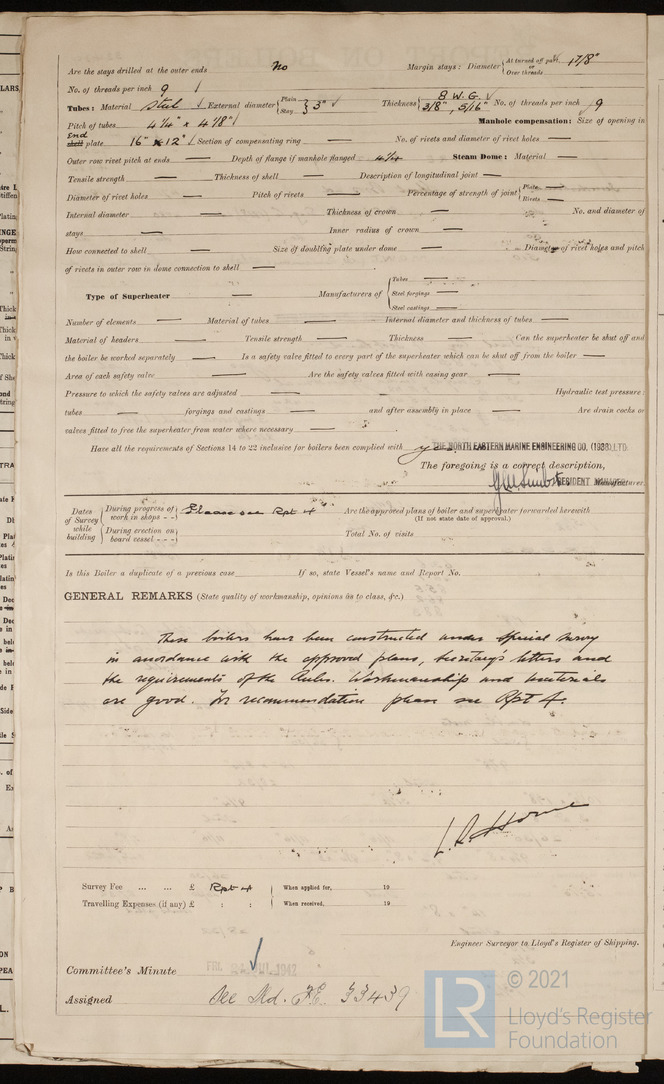 Are the stays drilled at the outer ends No Margin stays: Diameter { At turned off part, 1 7/8" or Over threads
No. of threads per inch 9
Tubes: Material Steel External diameter { Plain Stay } 3" Thickness 8 W.G. 3/8", 5/16" No. of threads per inch 9
Pitch of tubes 4 1/4" x 4 1/8" Manhole compensation: Size of opening in
End shell plate 16" x 12" Section of compensating ring — No. of rivets and diameter of rivet holes —
Outer row rivet pitch at ends — Depth of flange if manhole flanged 4 1/4 Steam Dome: Material —
Tensile strength — Thickness of shell — Description of longitudinal joint —
Diameter of rivet holes — Pitch of rivets — Percentage of strength of joint { Plate — Rivets —
Internal diameter — Thickness of crown — No. and diameter of
stays — Inner radius of crown —
How connected to shell — Size of doubling plate under dome — Diameter of rivet holes and pitch
of rivets in outer row in dome connection to shell —
Type of Superheater — Manufacturers of { Tubes — Steel forgings — Steel castings —
Number of elements — Material of tubes — Internal diameter and thickness of tubes —
Material of headers — Tensile strength — Thickness — Can the superheater be shut off and
the boiler be worked separately — Is a safety valve fitted to every part of the superheater which can be shut off from the boiler —
Area of each safety valve — Are the safety valves fitted with easing gear —
Pressure to which the safety valves are adjusted — Hydraulic test pressure:
tubes — forgings and castings — and after assembly in place — Are drain cocks or
valves fitted to free the superheater from water where necessary —
Have all the requirements of Sections 14 to 22 inclusive for boilers been complied with THE NORTH EASTERN MARINE ENGINEERING CO. (1938) LTD.
The foregoing is a correct description,
RESIDENT MANAGER Manufacturer.
Dates of Survey while building { During progress of work in shops - - Please see Rpt 4 Are the approved plans of boiler and superheater forwarded herewith
(If not state date of approval.)
During erection on board vessel - - - Total No. of visits
Is this Boiler a duplicate of a previous case If so, state Vessel's name and Report No.
GENERAL REMARKS (State quality of workmanship, opinions as to class, &c.)
These boilers have been constructed under special survey
in accordance with the approved plans, Secretary's letters and
the requirements of the Rules. Workmanship and materials
are good. For recommendation please see Rpt 4.
Survey Fee ... ... £ Rpt 4 When applied for, 19
Travelling Expenses (if any) £ : : When received, 19
Engineer Surveyor to Lloyd's Register of Shipping.
Committee's Minute FRI. 24 JUL 1942
Assigned See Nd. F.E. 33439
LR © 2021
Lloyd's Register
Foundation